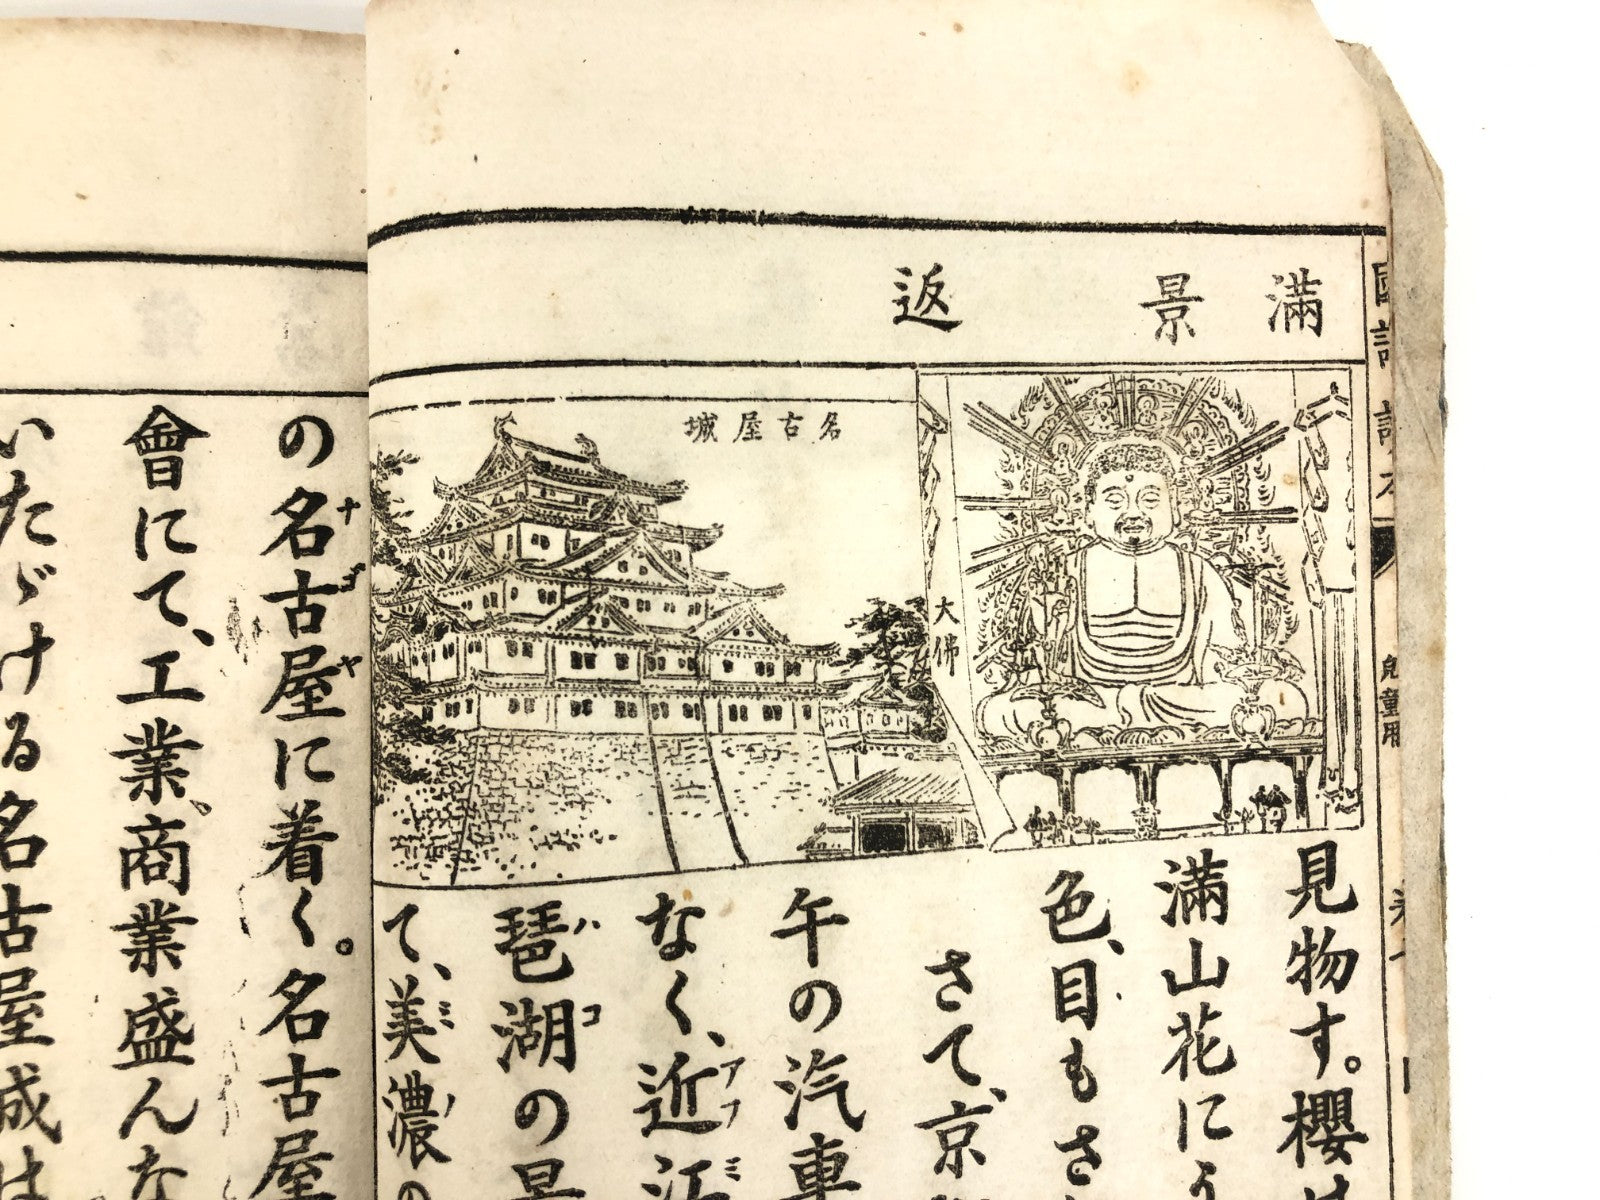 國語讀本
尋童用
満
景
返
大佛
名古屋城
見物す。櫻は
満山花にう
色、目もさ
さて、京
午の汽車
なく、近江
アフミ
琵琶湖の景
ハコ
て、美濃の
ミノ
の名古屋に着く。名古屋
ナゴヤ
會にて、工業、商業盛んな
いたゞける名古屋城は